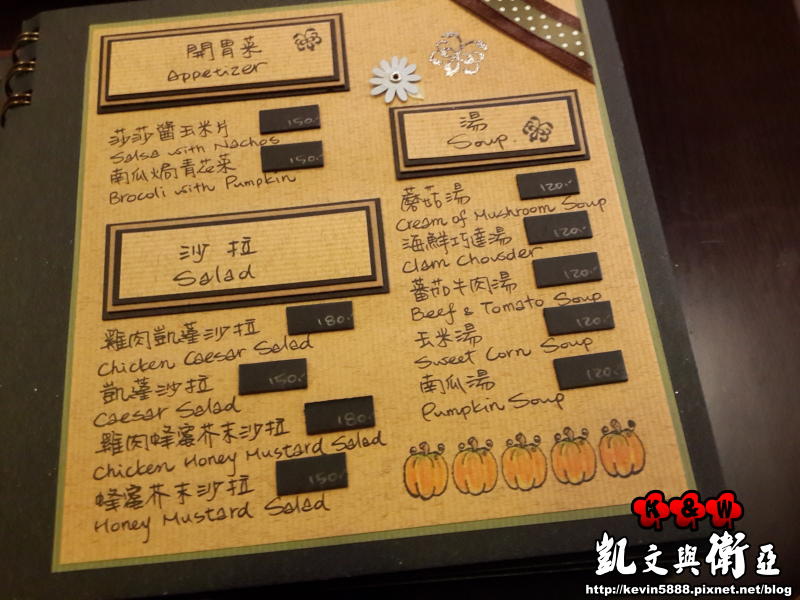 開胃菜
Appetizer
莎莎醬玉米片 150.-
Salsa with Nachos
南瓜焗青花菜 150.-
Brocoli with Pumpkin
沙拉
Salad
雞肉凱薩沙拉 180.-
Chicken Caesar Salad
凱薩沙拉 150.-
Caesar Salad
雞肉蜂蜜芥末沙拉 180.-
Chicken Honey Mustard Salad
蜂蜜芥末沙拉 150.-
Honey Mustard Salad
湯
Soup
蘑菇湯 120.-
Cream of Mushroom Soup
海鮮巧達湯 120.-
Clam Chowder
蕃茄牛肉湯 120.-
Beef & Tomato Soup
玉米湯 120.-
Sweet Corn Soup
南瓜湯 120.-
Pumpkin Soup
K & W
凱文與衛亞
http://kevin5888.pixnet.net/blog